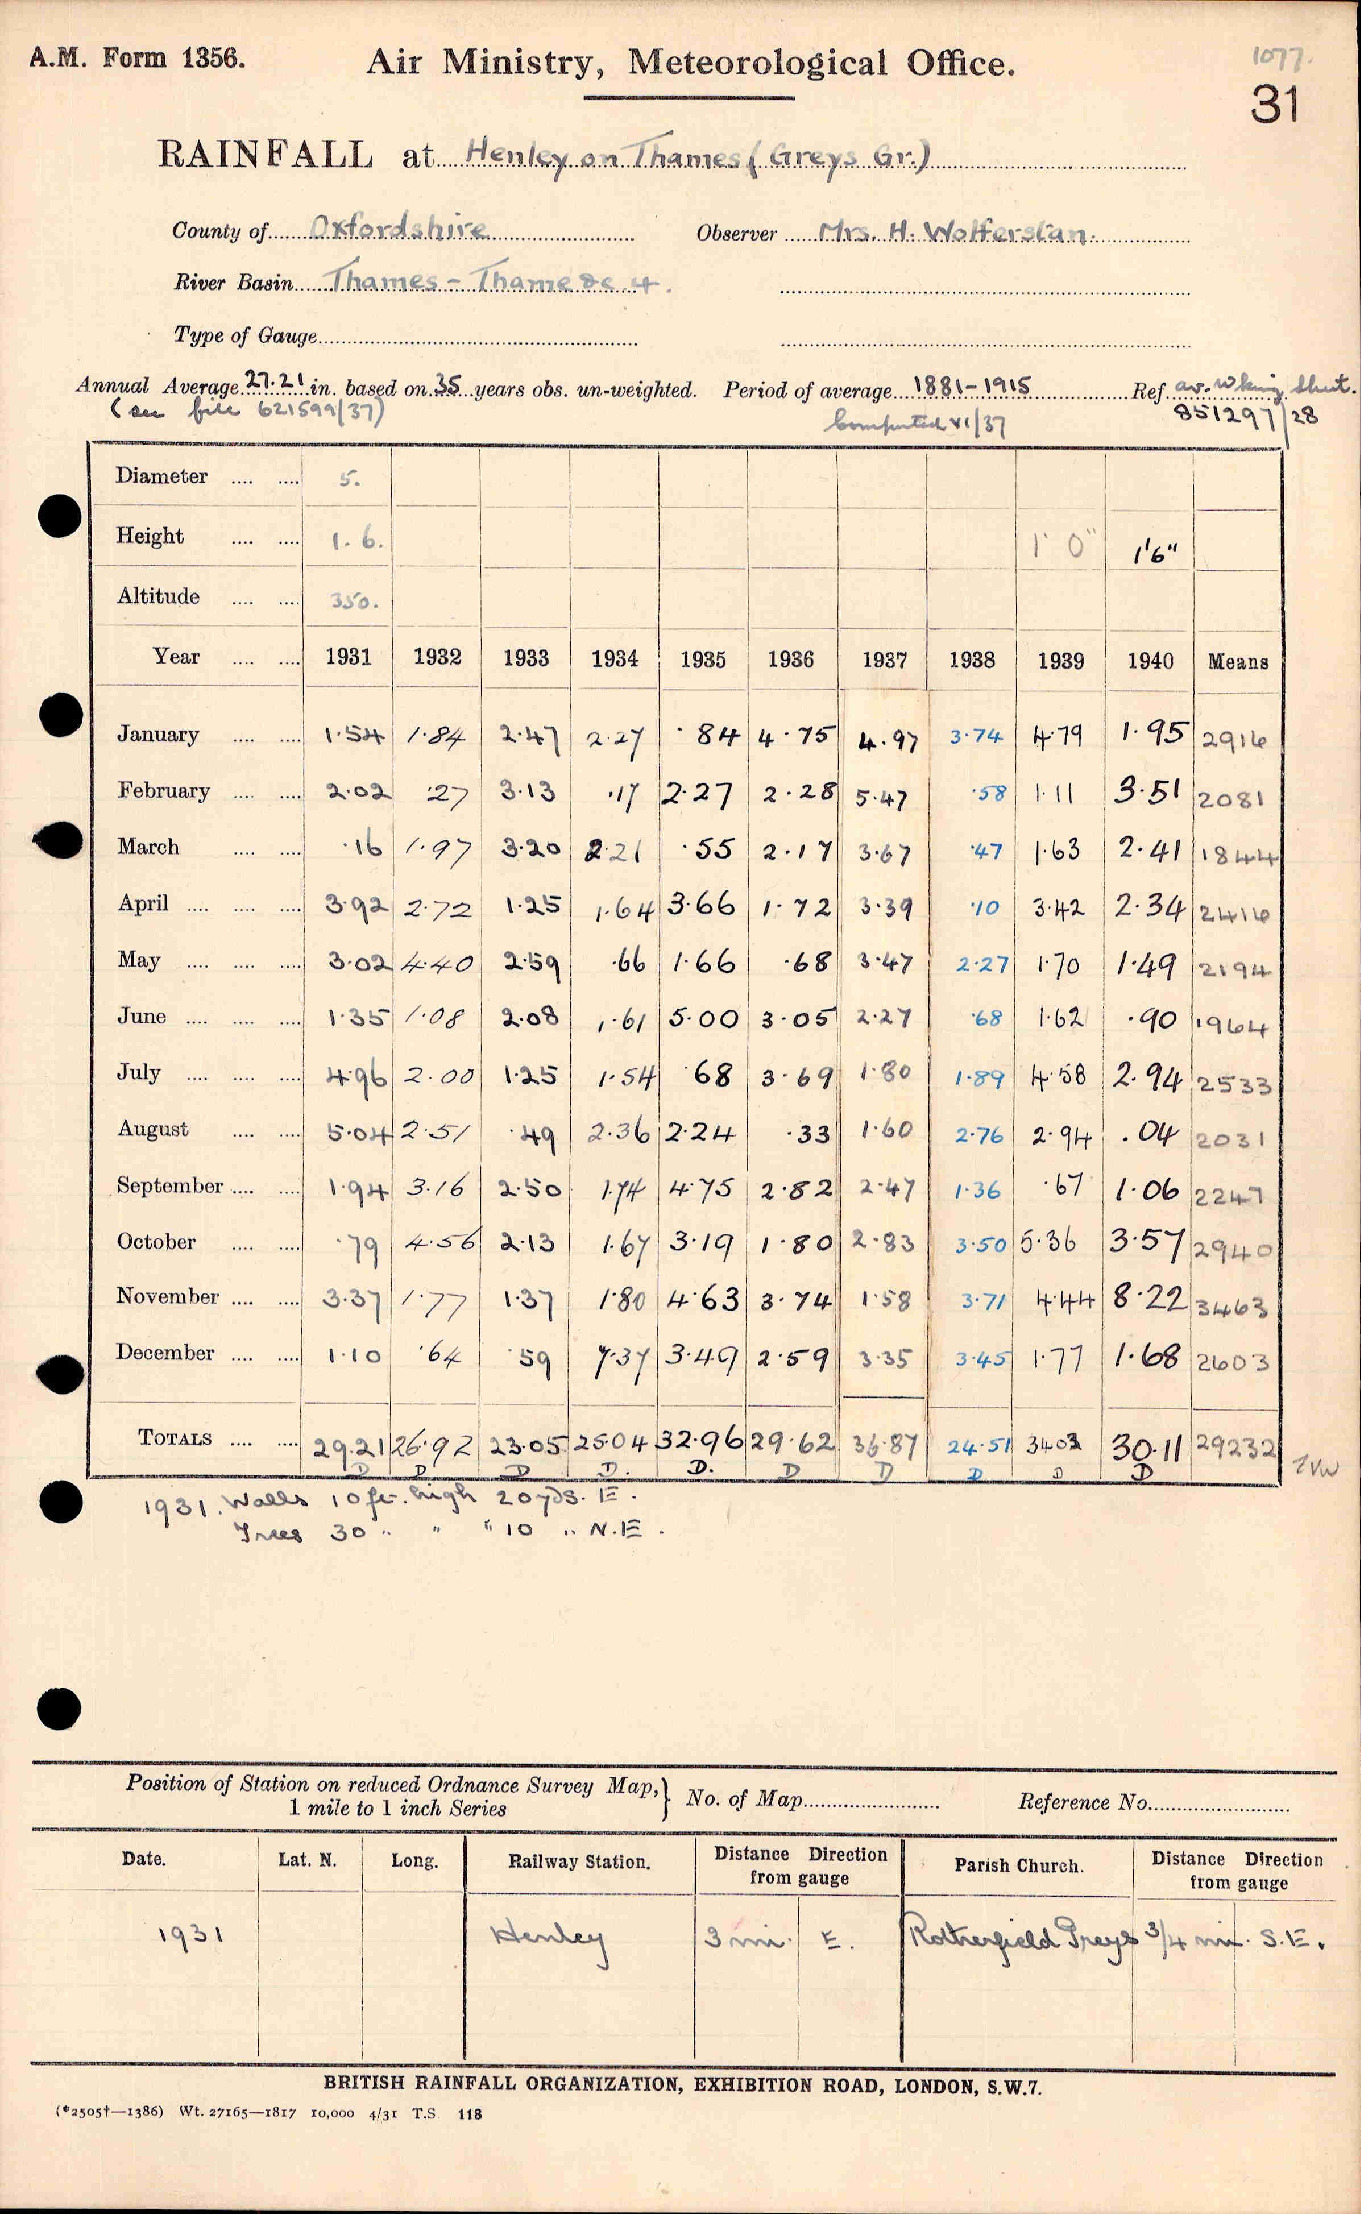 A.M. Form 1356.
Air Ministry, Meteorological Office.
1077.
31
RAINFALL at Henley on Thames (Greys Gr.)
County of Oxfordshire Observer Mrs. H. Wolferstan.
River Basin Thames - Thame &c 4.
Type of Gauge
Annual Average 27.21 in. based on 35 years obs. un-weighted. Period of average 1881-1915 Ref av. wking sheet.
(see file 621599/37) Computed XI/37 851297/28
Diameter 5.
Height 1. 6. 1' 0" 1'6"
Altitude 350.
Year 1931 1932 1933 1934 1935 1936 1937 1938 1939 1940 Means
January 1.54 1.84 2.47 2.27 .84 4.75 4.97 3.74 4.79 1.95 2916
February 2.02 .27 3.13 .17 2.27 2.28 5.47 .58 1.11 3.51 2081
March .16 1.97 3.20 2.21 .55 2.17 3.67 .47 1.63 2.41 1844
April 3.92 2.72 1.25 1.64 3.66 1.72 3.39 .10 3.42 2.34 2416
May 3.02 4.40 2.59 .66 1.66 .68 3.47 2.27 1.70 1.49 2194
June 1.35 1.08 2.08 1.61 5.00 3.05 2.27 .68 1.62 .90 1964
July 4.96 2.00 1.25 1.54 .68 3.69 1.80 1.89 4.58 2.94 2533
August 5.04 2.51 .49 2.36 2.24 .33 1.60 2.76 2.94 .04 2031
September 1.94 3.16 2.50 1.74 4.75 2.82 2.47 1.36 .67 1.06 2247
October .79 4.56 2.13 1.67 3.19 1.80 2.83 3.50 5.36 3.57 2940
November 3.37 1.77 1.37 1.80 4.63 3.74 1.58 3.71 4.44 8.22 3463
December 1.10 .64 .59 7.37 3.49 2.59 3.35 3.45 1.77 1.68 2603
TOTALS 29.21 26.92 23.05 25.04 32.96 29.62 36.87 24.51 34.03 30.11 29232
D D D D. D. D D D D D
1931. Walls 10 ft. high 20 yds. E.
Trees 30 " " " 10 " N.E.
Position of Station on reduced Ordnance Survey Map,} No. of Map Reference No.
1 mile to 1 inch Series
Date. Lat. N. Long. Railway Station. Distance Direction from gauge Parish Church. Distance Direction from gauge
1931 Henley 3 mi. E. Rotherfield Greys 3/4 mi. S.E.
BRITISH RAINFALL ORGANIZATION, EXHIBITION ROAD, LONDON, S.W.7.
(*2505†—1386) Wt. 27165—1817 10,000 4/31 T.S. 118